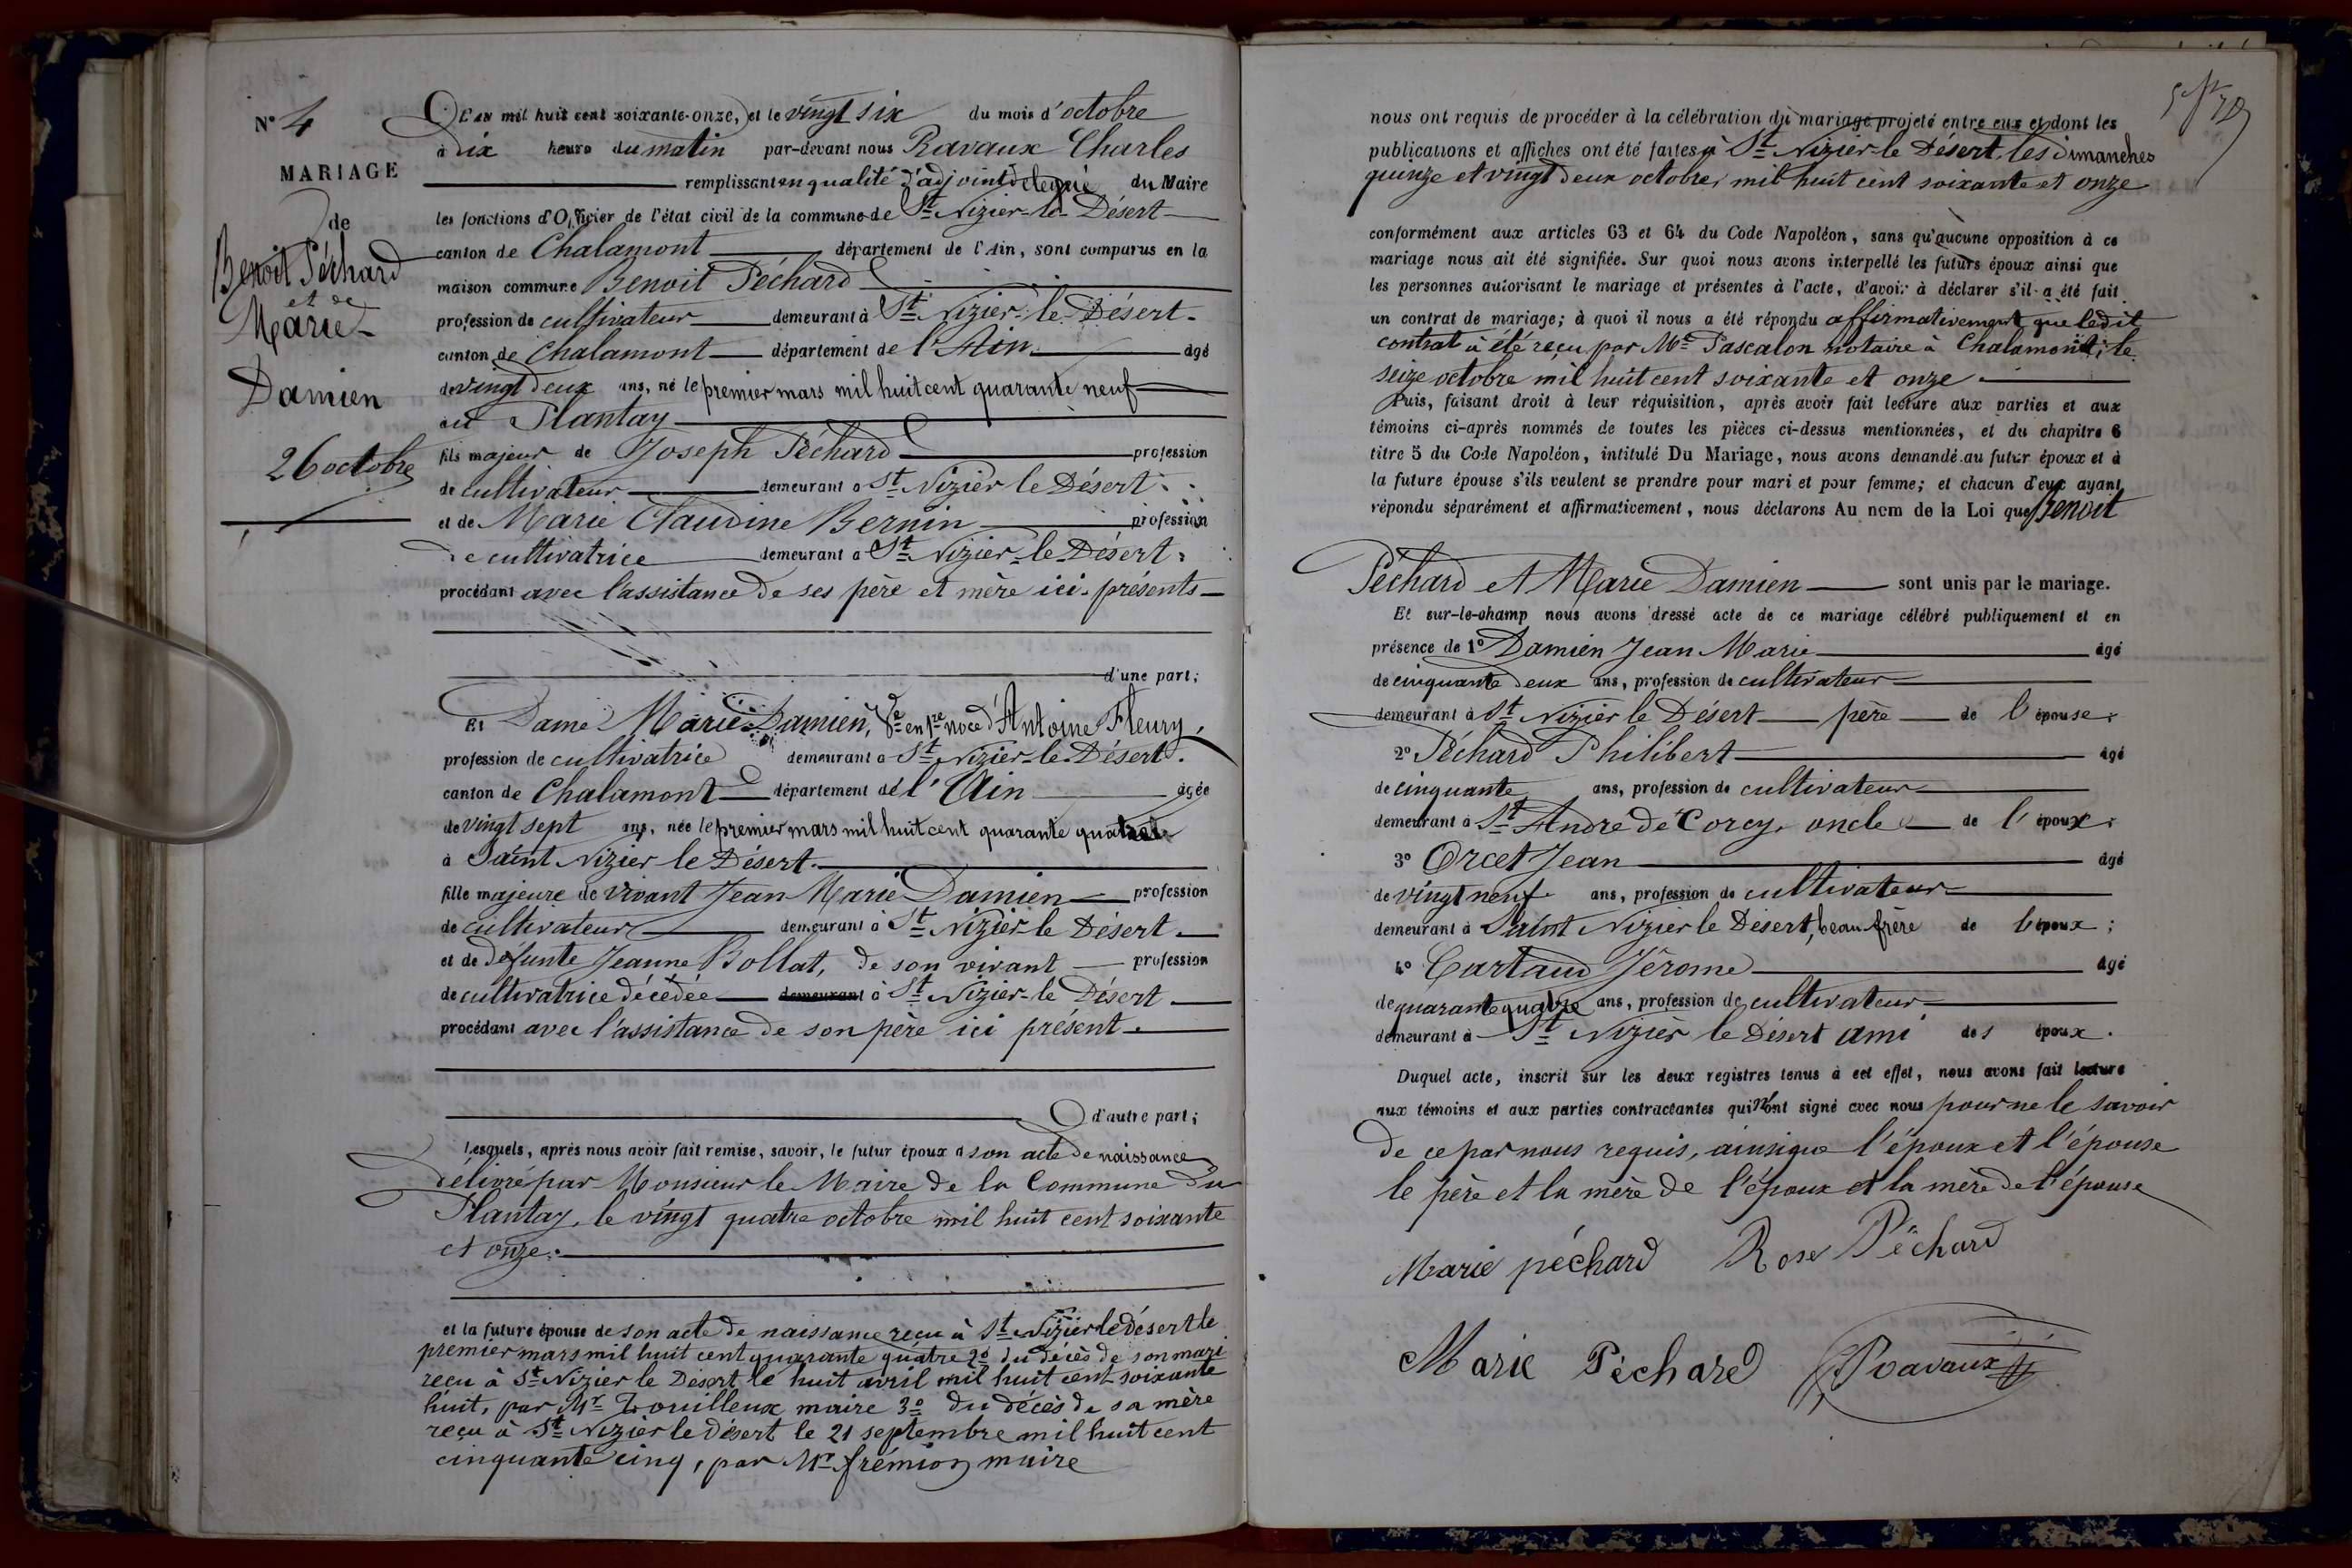 N° 4
MARIAGE
de
Benoit Péchard
et de
Marie
Damien
26 octobre
L'an mil huit cent soixante-onze, et le vingt six du mois d'octobre
à dix heure du matin par-devant nous Ravaux Charles
remplissant en qualité d'adjoint délégué du Maire
les fonctions d'Officier de l'état civil de la commune de St Nizier-le-Désert
canton de Chalamont département de l'Ain, sont comparus en la
maison commune Benoit Péchard
profession de cultivateur demeurant à St Nizier-le-Désert
canton de Chalamont département de l'Ain âgé
de vingt deux ans, né le premier mars mil huit cent quarante neuf
au Plantay
fils majeur de Joseph Péchard profession
de cultivateur demeurant à St Nizier le Désert
et de Marie Claudine Bernin profession
de cultivatrice demeurant à St Nizier-le-Désert
procédant avec l'assistance de ses père et mère ici présents
d'une part;
Et Dame Marie Damien, Ve en 1re noce d'Antoine Fleury,
profession de cultivatrice demeurant à St Nizier-le-Désert.
canton de Chalamont département de l'Ain âgée
de vingt sept ans, née le premier mars mil huit cent quarante quatre
à Saint Nizier le Désert.
fille majeure de vivant Jean Marie Damien profession
de cultivateur demeurant à St Nizier-le Désert.
et de défunte Jeanne Bollat, de son vivant profession
de cultivatrice décédée demeurant à St Nizier-le Désert
procédant avec l'assistance de son père ici présent.
d'autre part;
Lesquels, après nous avoir fait remise, savoir, le futur époux d son acte de naissance
délivré par Monsieur le Maire de la Commune du
Plantay, le vingt quatre octobre mil huit cent soixante
et onze.
et la future épouse de son acte de naissance reçu à St Nizier le désert le
premier mars mil huit cent quarante quatre 2° du décès de son mari
reçu à St Nizier le Desert le huit avril mil huit cent soixante
huit, par Mr Trouilleux maire 3° du décès de sa mère
reçu à St Nizier le désert le 21 septembre mil huit cent
cinquante cinq, par Mr frémion maire
nous ont requis de procéder à la célébration du mariage projeté entre eux et dont les
publications et affiches ont été faites à St Nizier-le Désert, les dimanches
quinze et vingt deux octobre, mil huit cent soixante et onze
conformément aux articles 63 et 64 du Code Napoléon, sans qu'aucune opposition à ce
mariage nous ait été signifiée. Sur quoi nous avons interpellé les futurs époux ainsi que
les personnes autorisant le mariage et présentes à l'acte, d'avoir à déclarer s'il a été fait
un contrat de mariage; à quoi il nous a été répondu affirmativement que ledit
contrat a été reçu par Me Pascalon notaire à Chalamont, le
seize octobre mil huit cent soixante et onze.
Puis, faisant droit à leur réquisition, après avoir fait lecture aux parties et aux
témoins ci-après nommés de toutes les pièces ci-dessus mentionnées, et du chapitre 6
titre 5 du Code Napoléon, intitulé Du Mariage, nous avons demandé au futur époux et à
la future épouse s'ils veulent se prendre pour mari et pour femme; et chacun d'eux ayant
répondu séparément et affirmativement, nous déclarons Au nom de la Loi que Benoit
Péchard et Marie Damien sont unis par le mariage.
Et sur-le-champ nous avons dressé acte de ce mariage célébré publiquement et en
présence de 1° Damien Jean Marie âgé
de cinquante deux ans, profession de cultivateur
demeurant à St Nizier le Désert père de l'épouse.
2° Péchard Philibert âgé
de cinquante ans, profession de cultivateur
demeurant à St André de Corcy, oncle de l'époux.
3° Orcet Jean âgé
de vingt neuf ans, profession de cultivateur
demeurant à Saint Nizier le Désert, beau frère de l'époux;
4° Cartaud Jérome âgé
de quarante quatre ans, profession de cultivateur
demeurant à St Nizier le Désert ami des époux.
Duquel acte, inscrit sur les deux registres tenus à cet effet, nous avons fait lecture
aux témoins et aux parties contractantes qui n'ont signé avec nous pour ne le savoir
de ce par nous requis, ainsi que l'époux et l'épouse
le père et la mère de l'époux et la mère de l'épouse
Marie péchard Rose Péchard
Marie Péchard Ravaux